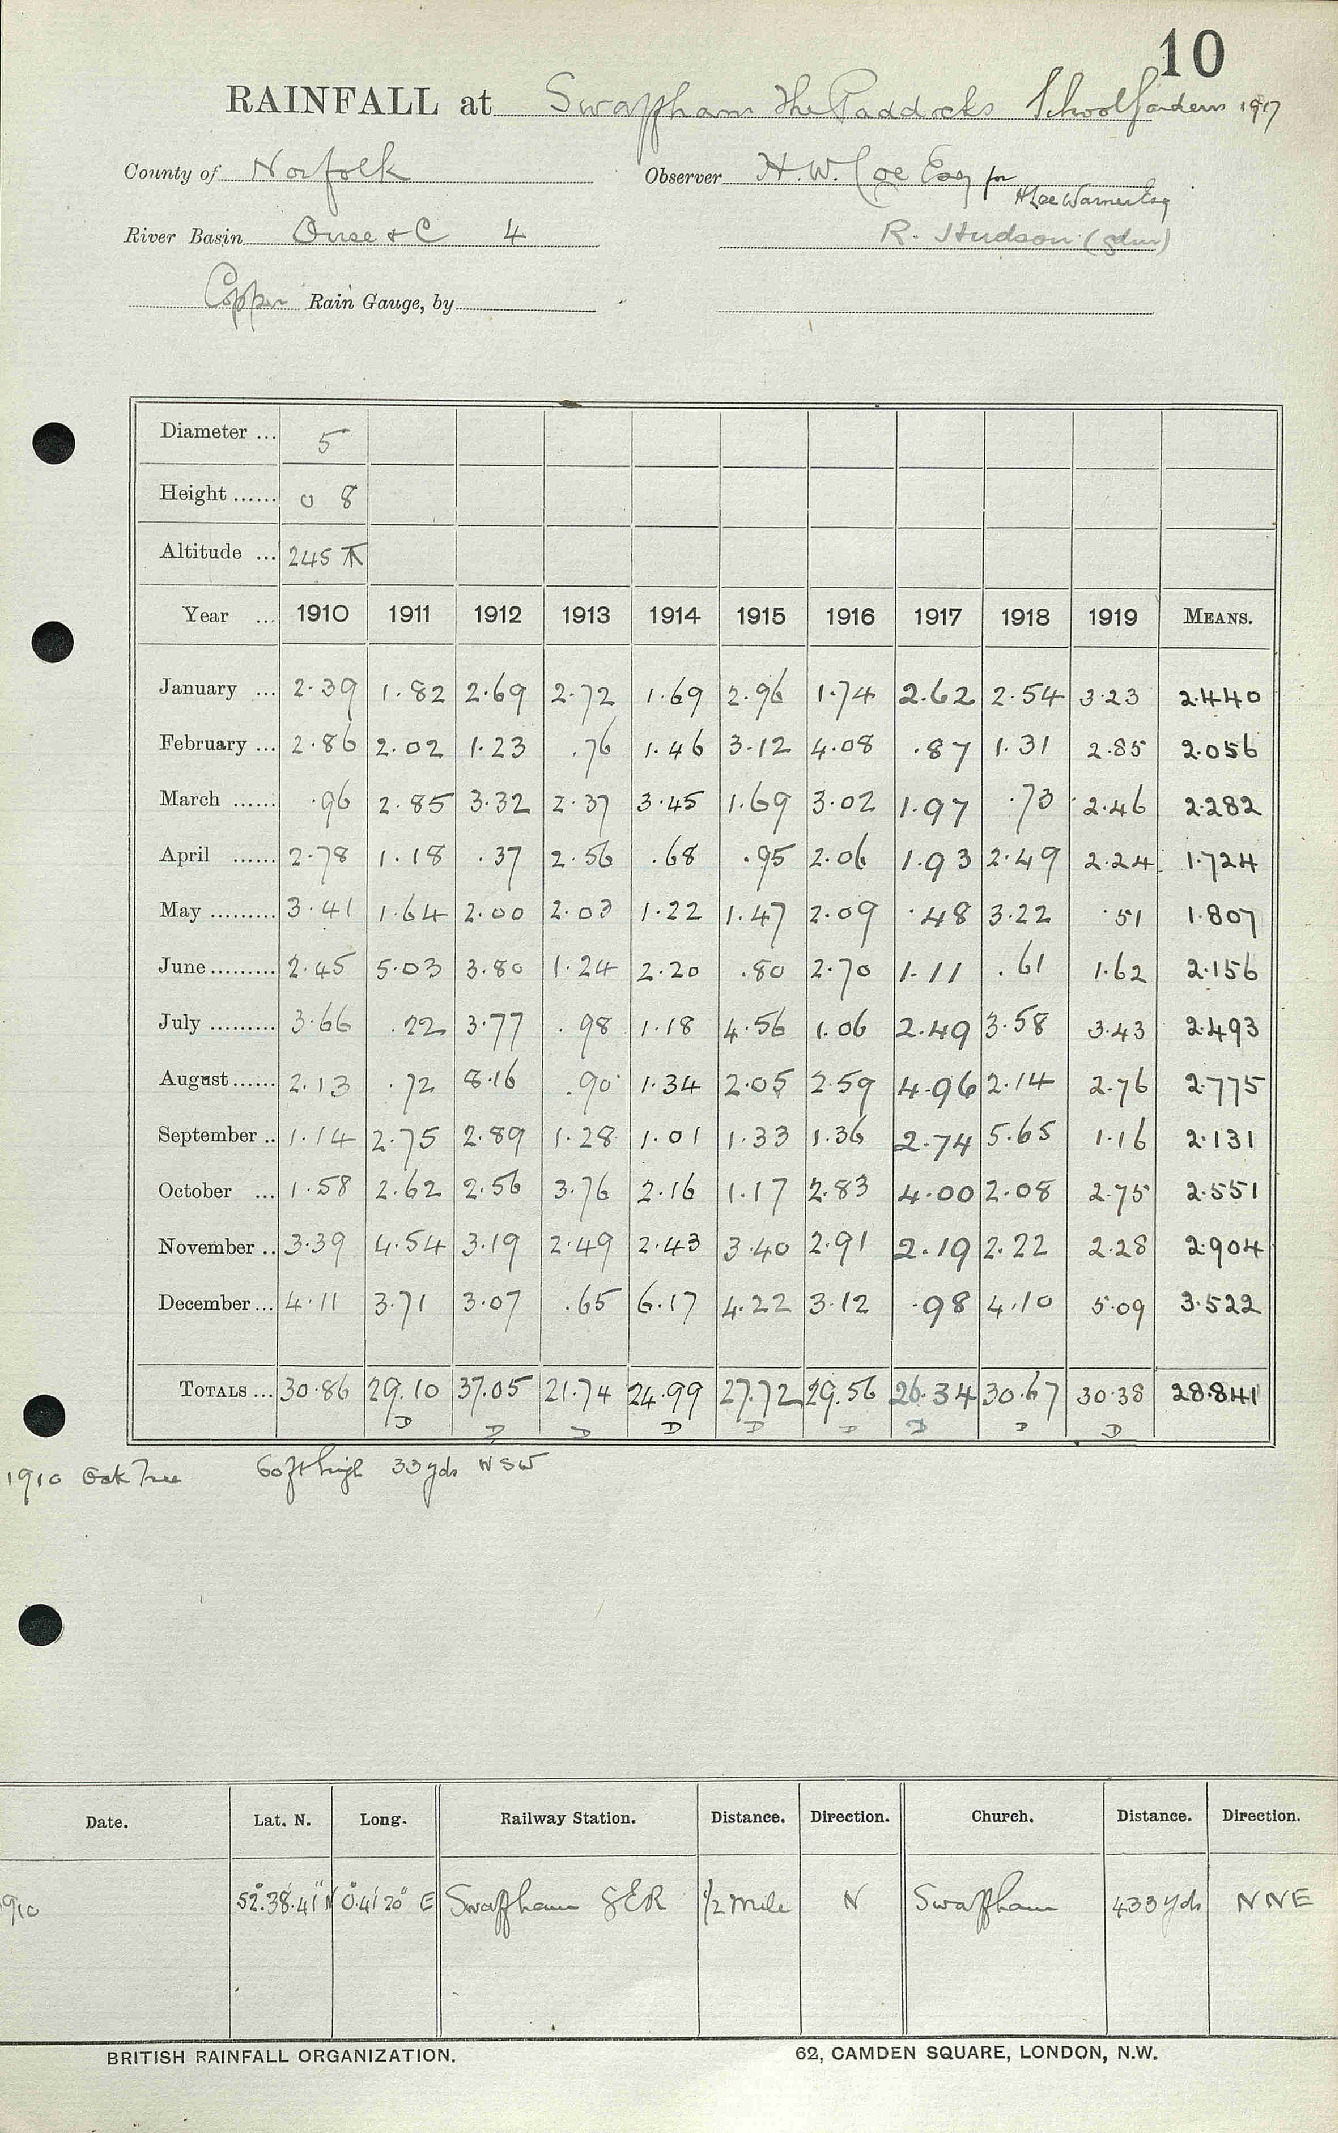 10
RAINFALL at Swaffham The Paddocks School Gardens 1917
County of Norfolk Observer H. W. Coe Esq for
H Lee Warner Esq
River Basin Ouse & C 4 R. Hudson (gdnr)
Copper Rain Gauge, by
Diameter ... 5
Height ...... 0 8
Altitude ... 245
Year ... 1910 1911 1912 1913 1914 1915 1916 1917 1918 1919 MEANS.
January ... 2.39 1.82 2.69 2.72 1.69 2.96 1.74 2.62 2.54 3.23 2.440
February ... 2.86 2.02 1.23 .76 1.46 3.12 4.08 .87 1.31 2.85 2.056
March ...... .96 2.85 3.32 2.37 3.45 1.69 3.02 1.97 .73 2.46 2.282
April ...... 2.78 1.18 .37 2.56 .68 .95 2.06 1.93 2.49 2.24 1.724
May ......... 3.41 1.64 2.00 2.03 1.22 1.47 2.09 .48 3.22 .51 1.807
June ......... 2.45 5.03 3.80 1.24 2.20 .80 2.70 1.11 .61 1.62 2.156
July ......... 3.66 .22 3.77 .98 1.18 4.56 1.06 2.49 3.58 3.43 2.493
August ...... 2.13 .72 8.16 .90 1.34 2.05 2.59 4.96 2.14 2.76 2.775
September .. 1.14 2.75 2.89 1.28 1.01 1.33 1.36 2.74 5.65 1.16 2.131
October ... 1.58 2.62 2.56 3.76 2.16 1.17 2.83 4.00 2.08 2.75 2.551
November .. 3.39 4.54 3.19 2.49 2.43 3.40 2.91 2.19 2.22 2.28 2.904
December ... 4.11 3.71 3.07 .65 6.17 4.22 3.12 .98 4.10 5.09 3.522
TOTALS ... 30.86 29.10 37.05 21.74 24.99 27.72 29.56 26.34 30.67 30.38 28.841
D D D D D D D D D
1910 Oak Tree 60 ft high 33 yds WSW
Date. Lat. N. Long. Railway Station. Distance. Direction. Church. Distance. Direction.
910 52°.38'.41" N 0°.41'20" E Swaffham GER 1/2 mile N Swaffham 433 yds NNE
BRITISH RAINFALL ORGANIZATION. 62, CAMDEN SQUARE, LONDON, N.W.